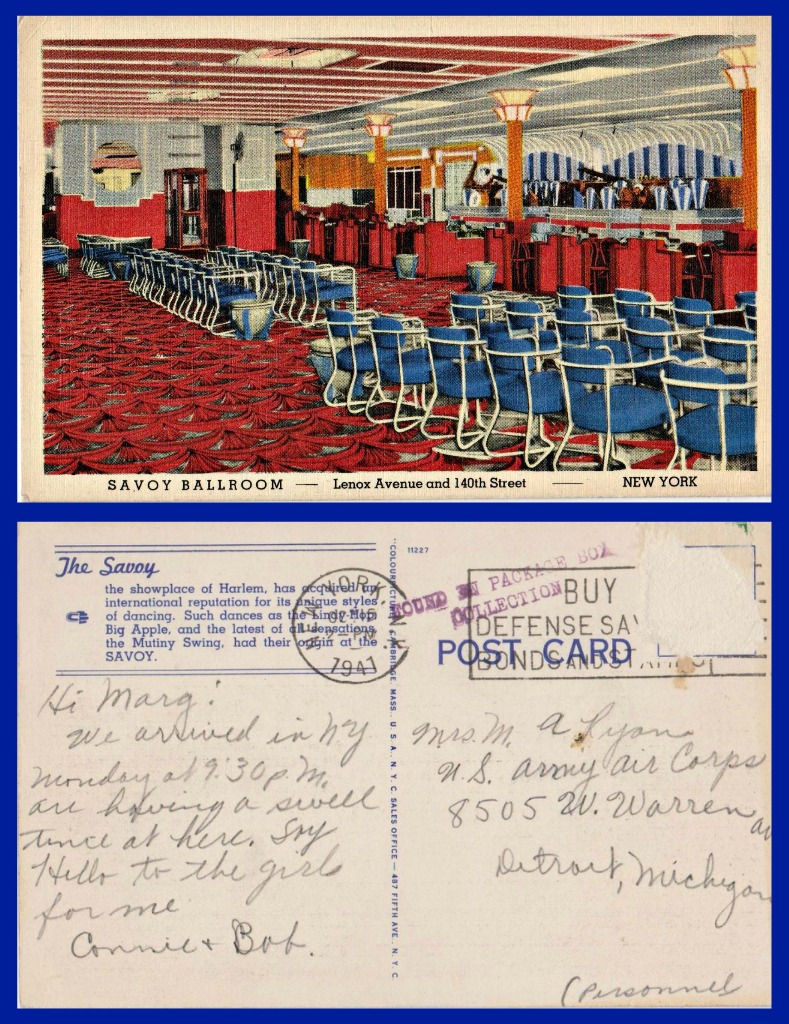 SAVOY BALLROOM — Lenox Avenue and 140th Street — NEW YORK
The Savoy
the showplace of Harlem, has acquired an
international reputation for its unique styles
of dancing. Such dances as the Lindy-Hop,
Big Apple, and the latest of all sensations,
the Mutiny Swing, had their origin at the
SAVOY.
Hi Marg!
We arrived in NY
Monday at 9:30 p.M.
are having a swell
time at here. Say
Hello to the girls
for me
Connie + Bob.
CAMBRIDGE, MASS., U. S. A. N. Y. C. SALES OFFICE — 487 FIFTH AVE. N. Y. C.
11227
NEW YORK, N.Y.
1941
FOUND IN PACKAGE BOX
COLLECTION
BUY
DEFENSE SAV
BONDS AND STAMPS
POST CARD
Mrs. M. A Ryan
U.S. Army Air Corps
8505 W. Warren av
Detroit, Michigan
(Personnel